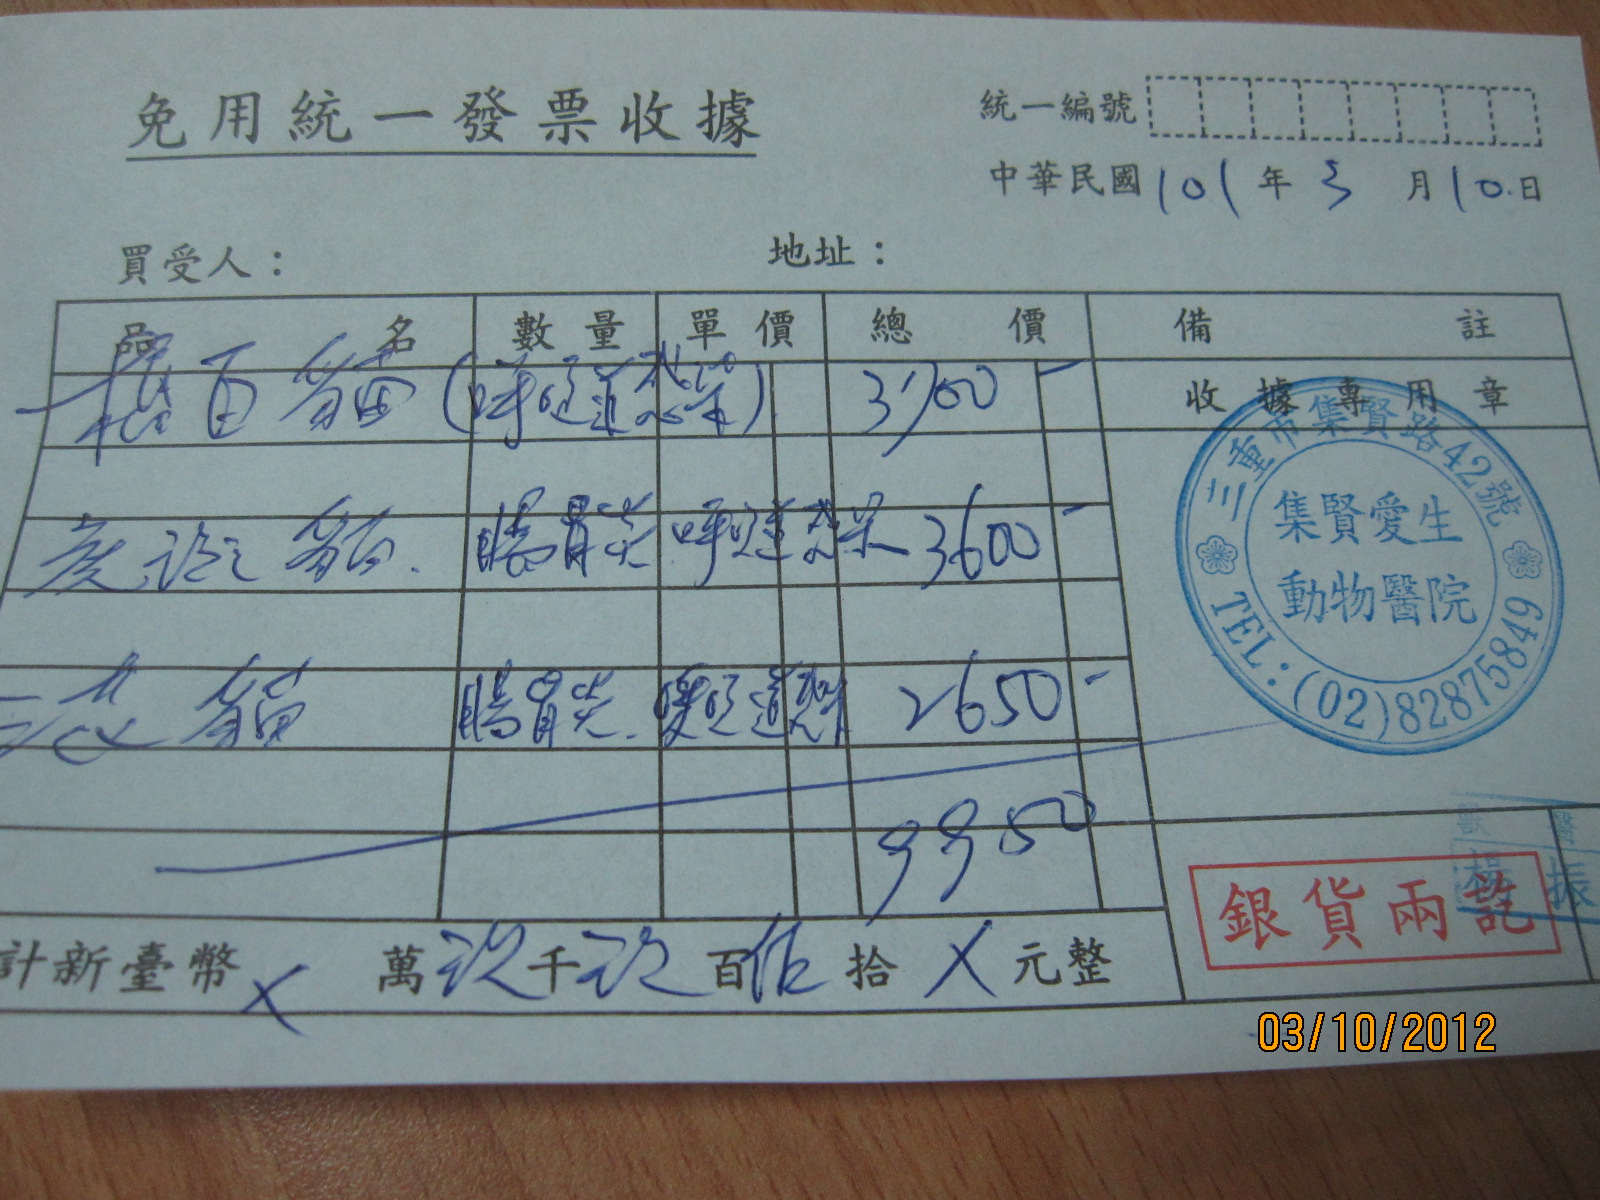 免用統一發票收據
統一編號
中華民國101年3月10日
買受人：
地址：
品名 數量 單價 總價 備註
橘白貓(呼吸道感染) 3700
收據專用章
三重市集賢路42號
集賢愛生
動物醫院
TEL:(02)82875849
貓 腸胃炎 呼吸道感染 3600
貓 腸胃炎 呼吸道感染 2650
9950
計新臺幣X萬玖千玖百伍拾X元整
銀貨兩訖
振
03/10/2012